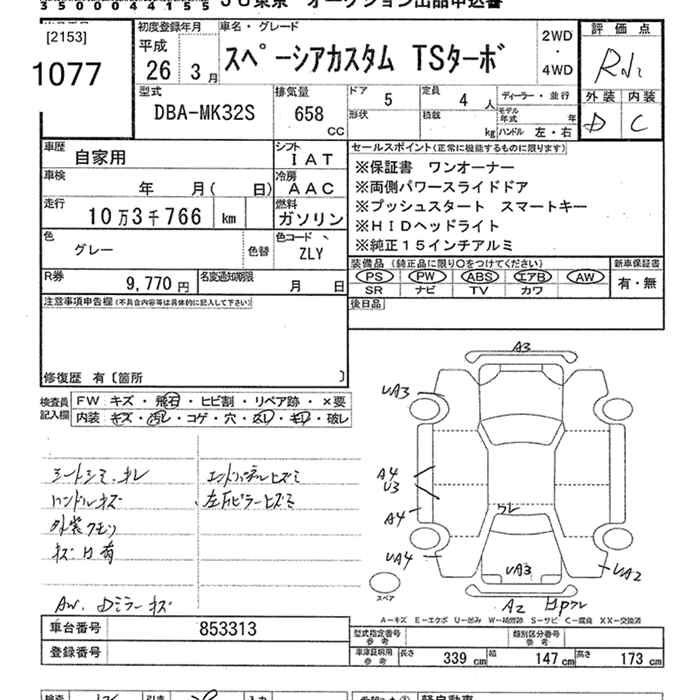 35000044155 JU東京 オークション出品申込書
[2153]
1077
初度登録年月
平成
26 3月
車名・グレード
スペーシアカスタム TSターボ
2WD
・
4WD
評価点
外装 内装
D C
型式
DBA-MK32S
排気量
658
CC
ドア
5
定員
4 人
ディーラー・並行
形状
積載
kg
モデル年式 年
ハンドル 左・右
車歴
自家用
シフト
IAT
車検
年 月( 日)
冷房
AAC
走行
10万3千766 km
燃料
ガソリン
色
グレー
色替
色コード
ZLY
R券
9,770円
名変通知期限
月 日
セールスポイント(正常に機能するものに限ります)
※保証書 ワンオーナー
※両側パワースライドドア
※プッシュスタート スマートキー
※HIDヘッドライト
※純正15インチアルミ
装備品(純正品に限り○をつけてください)
新車保証書
PS PW ABS エアB AW
有・無
SR ナビ TV カワ
後日品
注意事項申告欄(不具合内容等は具体的に記入して下さい)
修復歴 有〔箇所 〕
検査員記入欄
FW キズ・飛石・ヒビ割・リペア跡・×要
内装・キズ・汚レ・コゲ・穴・スレ・キレ・破レ
シートシミ、オレ
ハンドルキズ
外装クモリ
キズ凹有
AW、Dミラーキズ
エンドパネルヒズミ
左Fピラーヒズミ
A3
UA3
A4
U3
A4
UA4
ワレ
UA3
UA2
A2
スペア
A-キズ E-エクボ U-凹み W-補修跡 S-サビ C-腐食 XX-交換済
車台番号 853313
登録番号
型式指定番号 参考
類別区分番号 参考
車庫証明用 参考
長さ 339 cm 幅 147 cm 高さ 173 cm
軽自動車